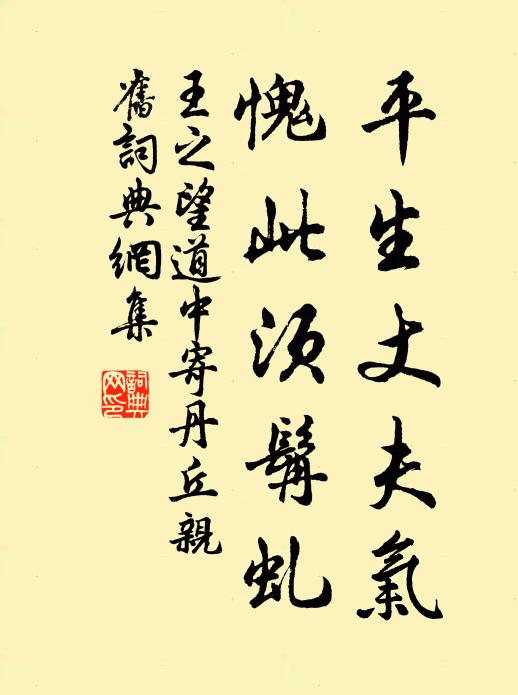 平生丈夫氣
愧此須髯虬
王之望道中寄丹丘親
舊詞典網集
詞典網印